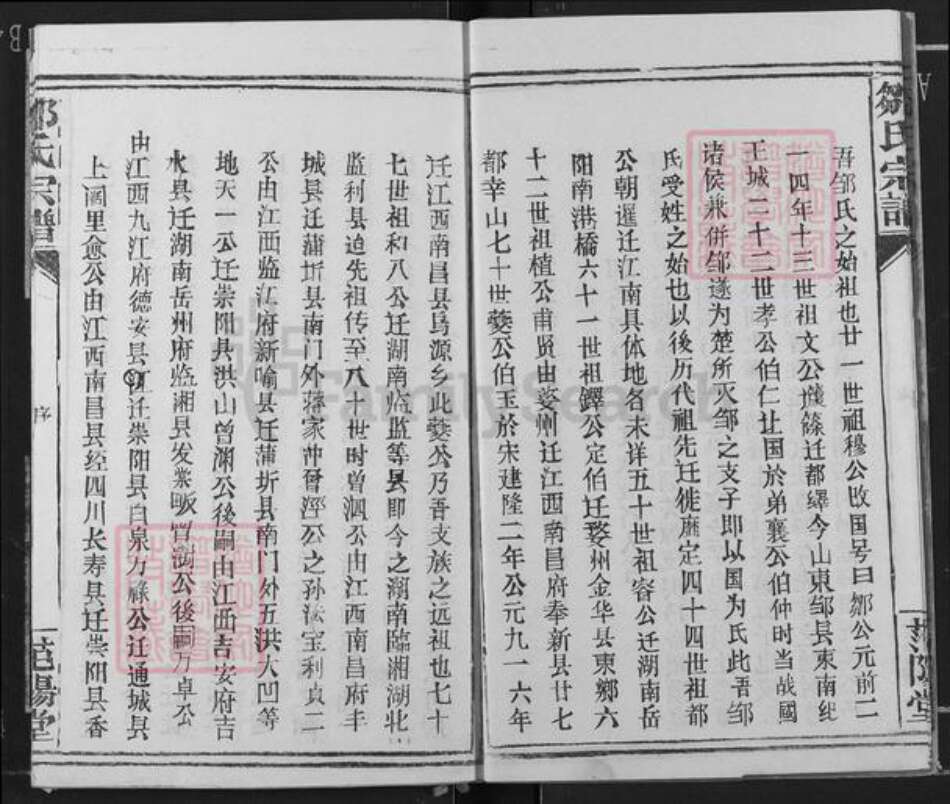 鄒氏宗譜
范陽堂
吾邹氏之始祖也廿一世祖穆公改国号曰邹公元前二
一四年十三世祖文公籧篨迁都繹今山東邹县東南纪
王城二十二世孝公伯仁让国於弟襄公伯仲时当战國
诸侯兼併邹遂为楚所灭邹之支子即以国为氏此吾邹
氏受姓之始也以後历代祖先迁徙靡定四十四世祖都
公朝暹迁江南具体地名未详五十世祖容公迁湖南岳
阳南港橋六十一世祖鐸公定伯迁婺州金华县東鄉六
十二世祖植公甫賢由婺州迁江西南昌府奉新县廿七
都幸山七十世夔公伯玉於宋建隆二年公元九一六年
迁江西南昌县烏源乡此夔公乃吾支族之远祖也七十
七世祖和八公迁湖南临监等县即今之湖南臨湘湖北
监利县迨先祖传至八十世时曾泗公由江西南昌府丰
城县迁蒲圻县南门外蒋家沖晉淫公之孙法宝利貞二
公由江西临江府新喻县迁蒲圻县南门外五洪大凹等
地天一公迁崇阳县洪山曾渊公後嗣由江西吉安府吉
水县迁湖南岳州府临湘县发裳畈曾澍公後嗣万卓公
由江西九江府德安县迁崇阳县白泉力祿公迁通城县
上阔里愈公由江西南昌县经四川长寿县迁崇阳县香
邹氏宗譜
序
范陽堂
FamilySearch